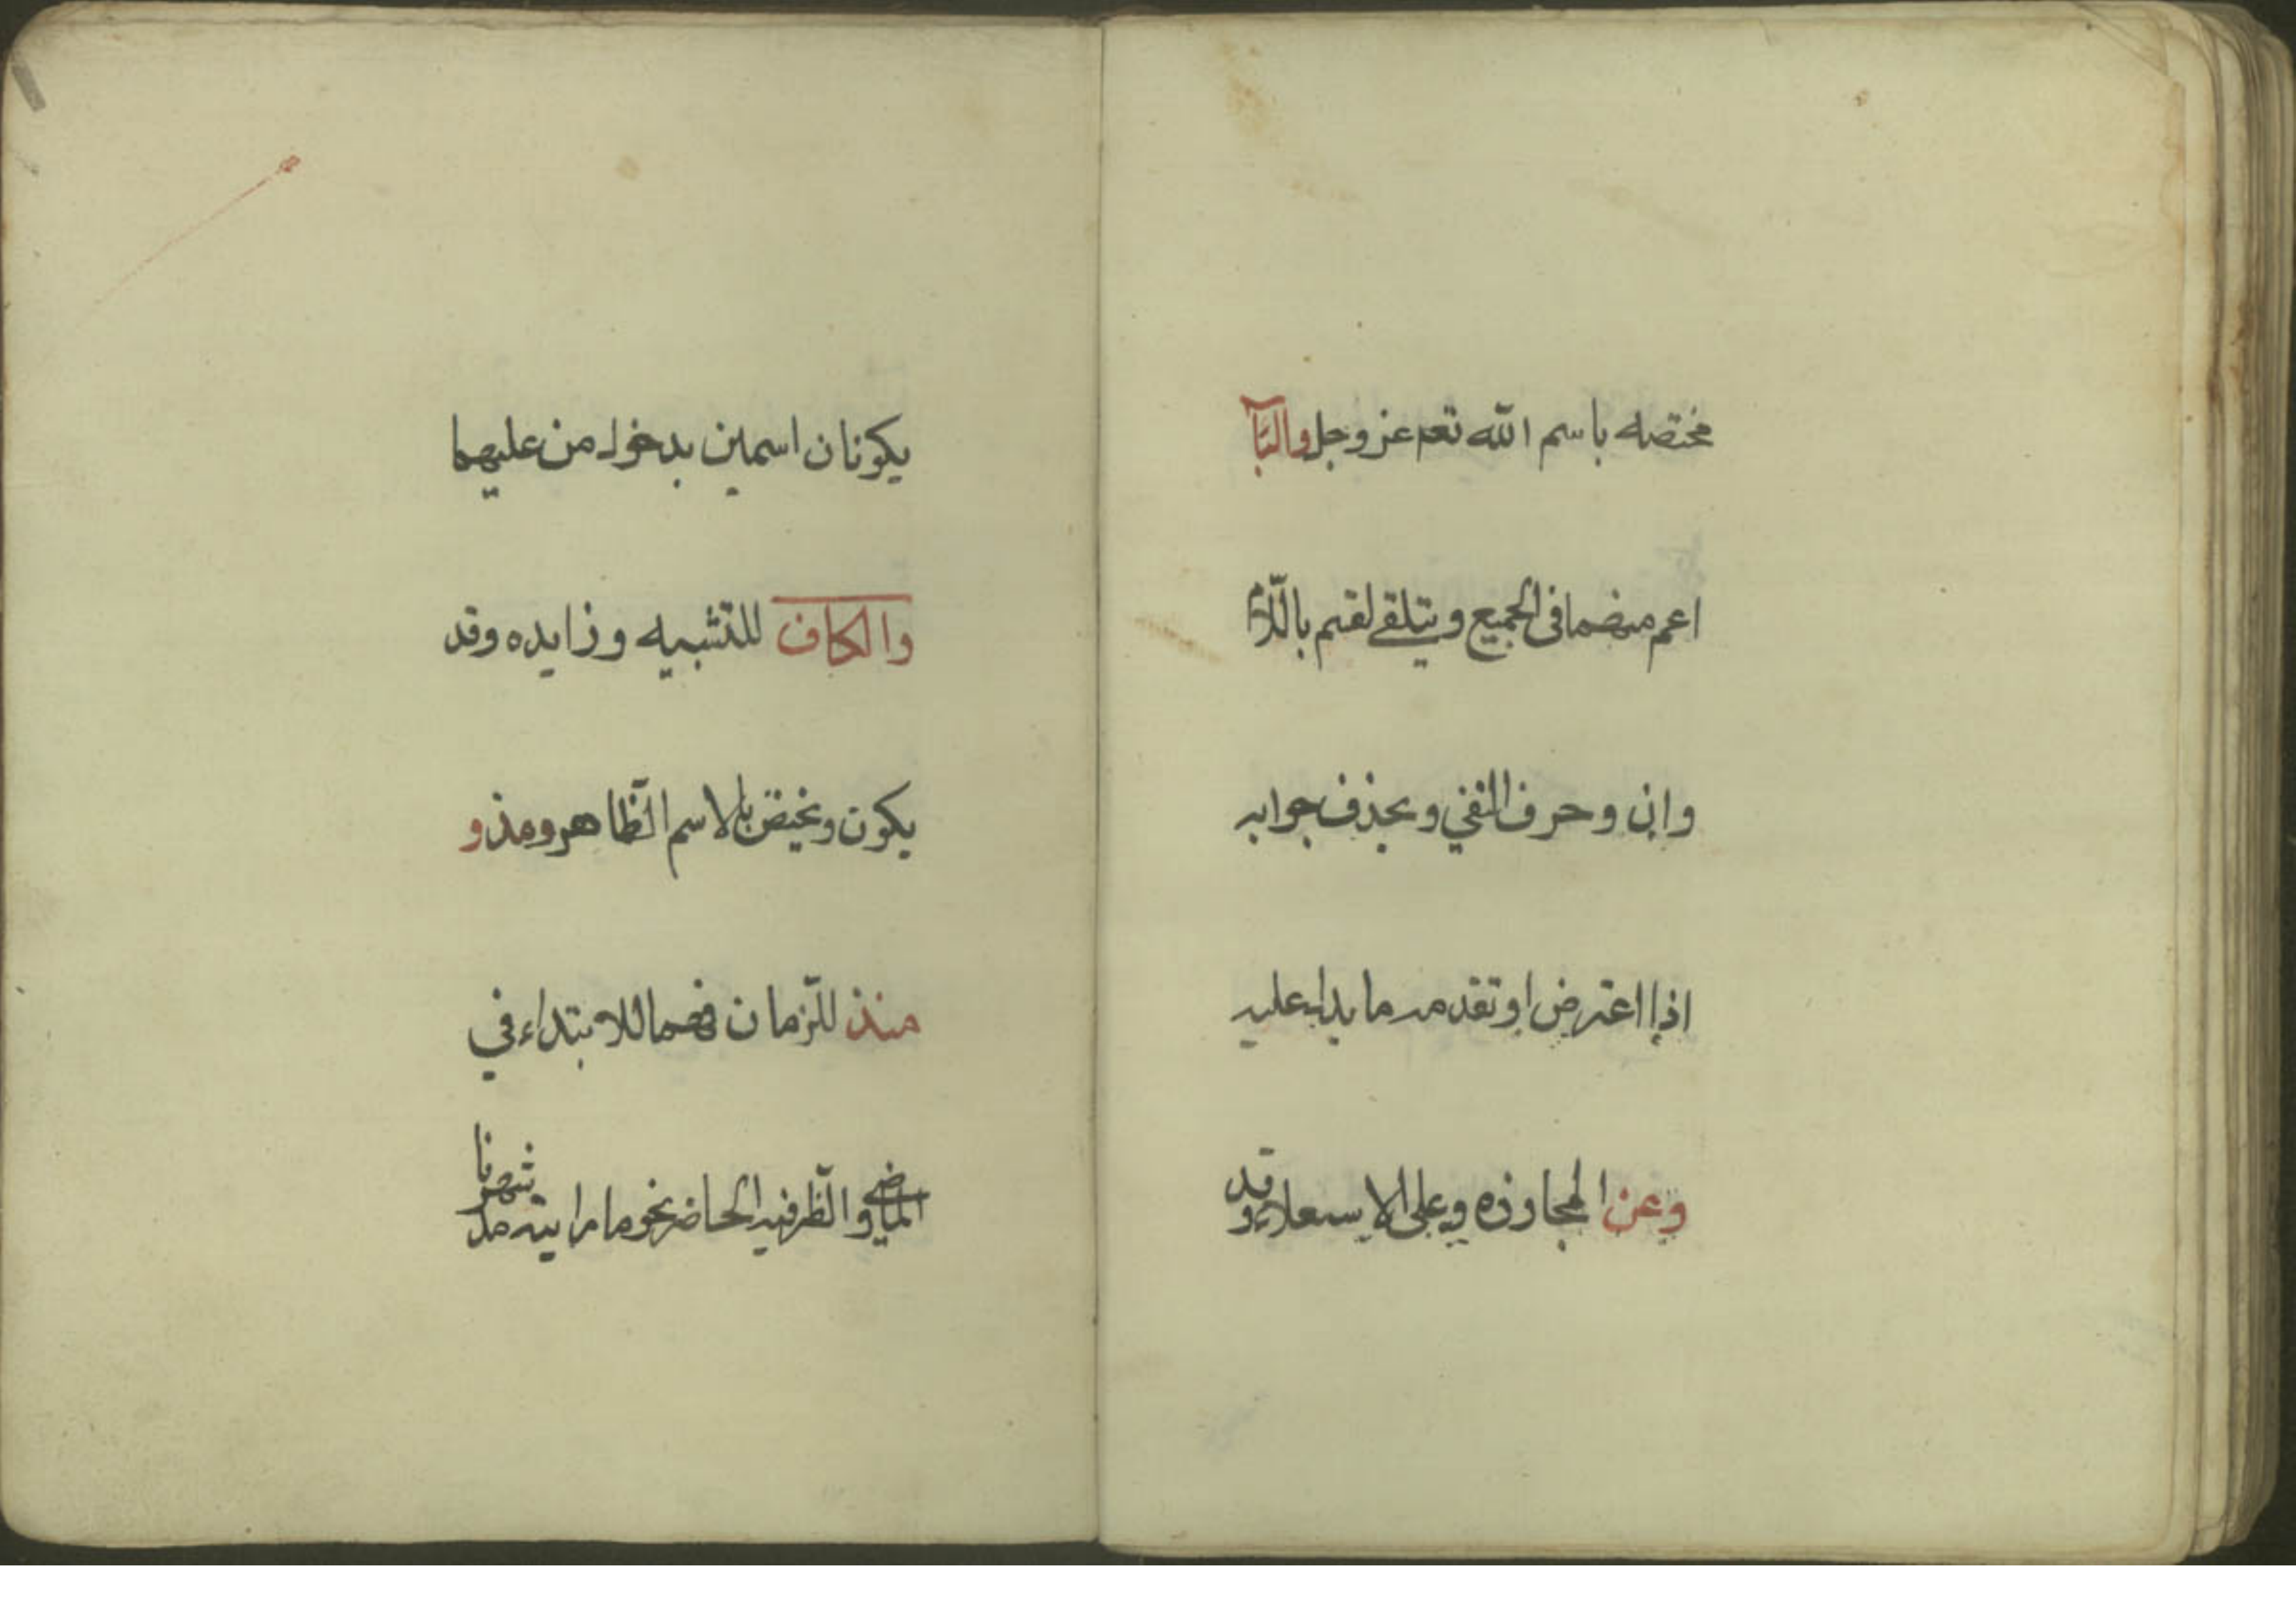 مختصه باسم الله تعم عز وجل والبآ
اعم منهما فی الجميع ويتلقی لقسم باللام
وان وحرف النفي ويحذف جوابه
اذا اعترض او تقدمه ما يدل عليه
وعن المجاوزه وعلی الاستعلاء وقد
يكونان اسمين بدخول من عليهما
والكاف للتشبيه وزايده وقد
يكون ويختص بالاسم الظاهر ومذ و
منذ للزمان فهما للابتداء في
الماضي والظرفيه الحاضر نحو ما رايته مذ شهرنا